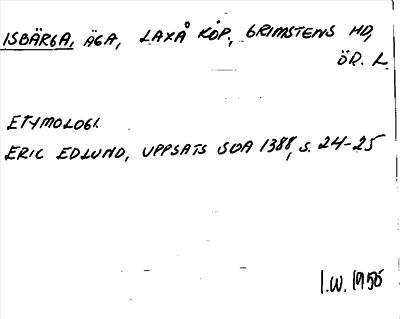 ISBÄRGA, ÄGA, LAXÅ KÖP., GRIMSTENS HD,
ÖR. L.
ETYMOLOGI.
ERIC EDLUND, UPPSATS SOA 1388, S. 24-25
I.W. 1950